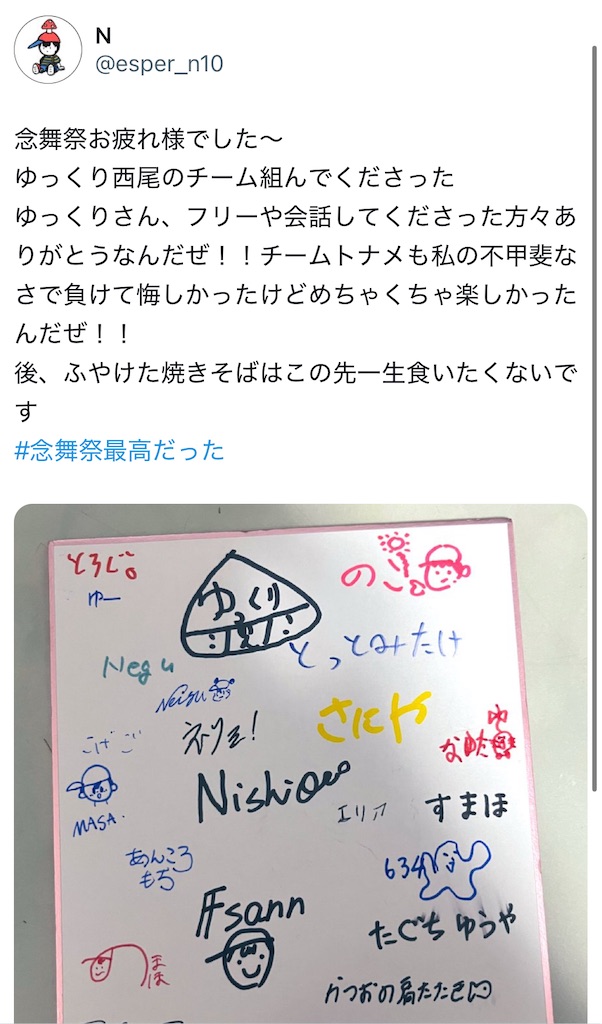 N
@esper_n10
念舞祭お疲れ様でした〜
ゆっくり西尾のチーム組んでくださった
ゆっくりさん、フリーや会話してくださった方々あ
りがとうなんだぜ！！チームトナメも私の不甲斐な
さで負けて悔しかったけどめちゃくちゃ楽しかった
んだぜ！！
後、ふやけた焼きそばはこの先一生食いたくないで
す
#念舞祭最高だった
とろじ。
ゆー
ゆっくり
のこ
とっとみたけ
Negu
さにや
Nishio
エリア
すまほ
MASA.
あんころ
もち
634
Fsann
たぐち ゆうや
まほ
かつおの肩たたき